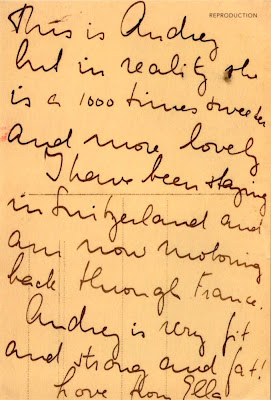 REPRODUCTION
This is Audrey
but in reality she
is a 1000 times sweeter
and more lovely
I have been staying
in Switzerland and
am now motoring
back through France.
Audrey is very fit
and strong and fat!
Love from Ella